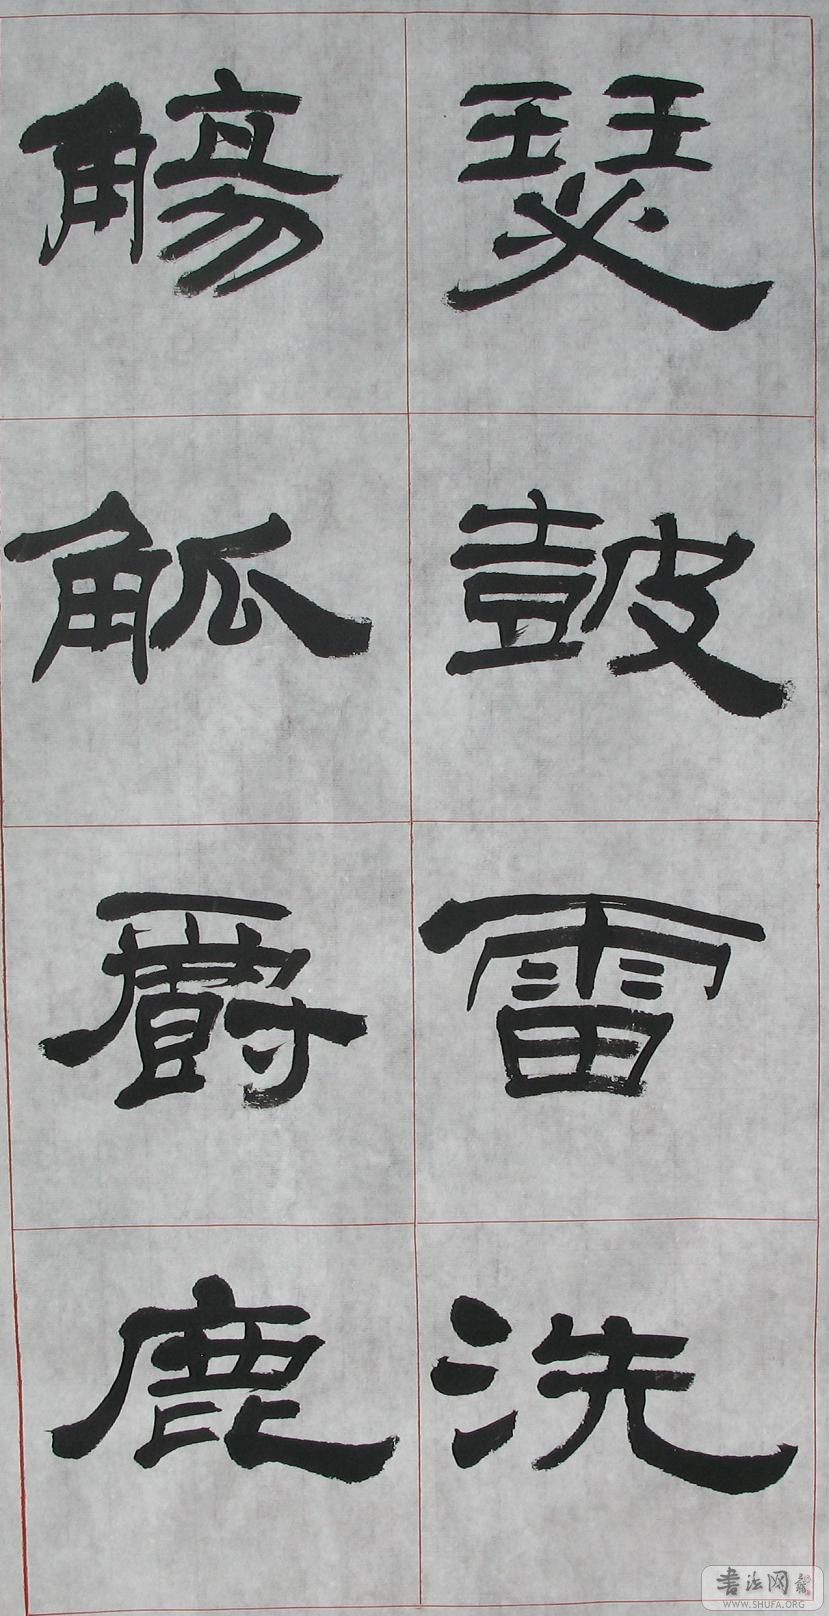 瑟鼓雷洗
觴觚爵鹿
书法网
WWW.SHUFA.ORG